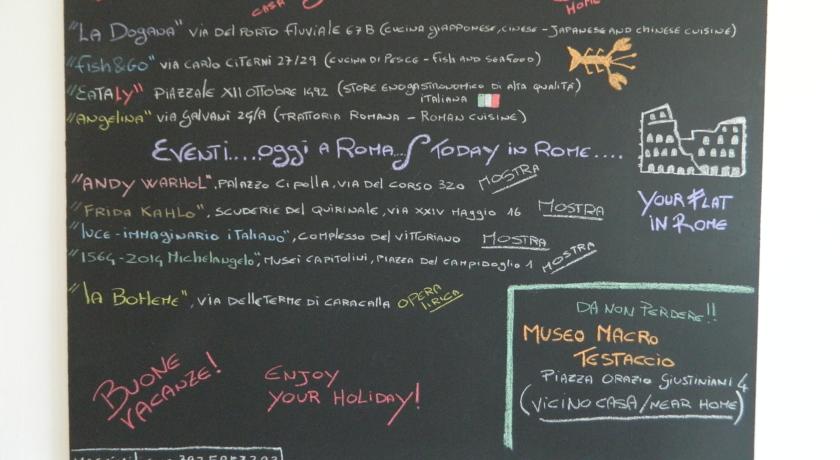 CASA
HOME
"LA DOGANA" VIA DEL PORTO FLUVIALE 67B (CUCINA GIAPPONESE, CINESE - JAPANESE AND CHINESE CUISINE)
"FISH&GO" VIA CARLO CITERNI 27/29 (CUCINA DI PESCE - FISH AND SEAFOOD)
"EATALY" PIAZZALE XII OTTOBRE 1492 (STORE ENOGASTRONOMICO DI ALTA QUALITÀ)
ITALIANA
"ANGELINA" VIA GALVANI 24/A (TRATTORIA ROMANA - ROMAN CUISINE)
EVENTI....OGGI A ROMA../TODAY IN ROME....
"ANDY WARHOL", PALAZZO CIPOLLA, VIA DEL CORSO 320 MOSTRA
"FRIDA KAHLO", SCUDERIE DEL QUIRINALE, VIA XXIV MAGGIO 16 MOSTRA
"LUCE - IMMAGINARIO ITALIANO", COMPLESSO DEL VITTORIANO MOSTRA
"1564-2014 MICHELANGELO", MUSEI CAPITOLINI, PIAZZA DEL CAMPIDOGLIO 1 MOSTRA
YOUR FLAT
IN ROME
"LA BOHEME", VIA DELLE TERME DI CARACALLA OPERA LIRICA
DA NON PERDERE!!
MUSEO MACRO
TESTACCIO
PIAZZA ORAZIO GIUSTINIANI 4
(VICINO CASA/NEAR HOME)
BUONE
VACANZE!
ENJOY
YOUR HOLIDAY!